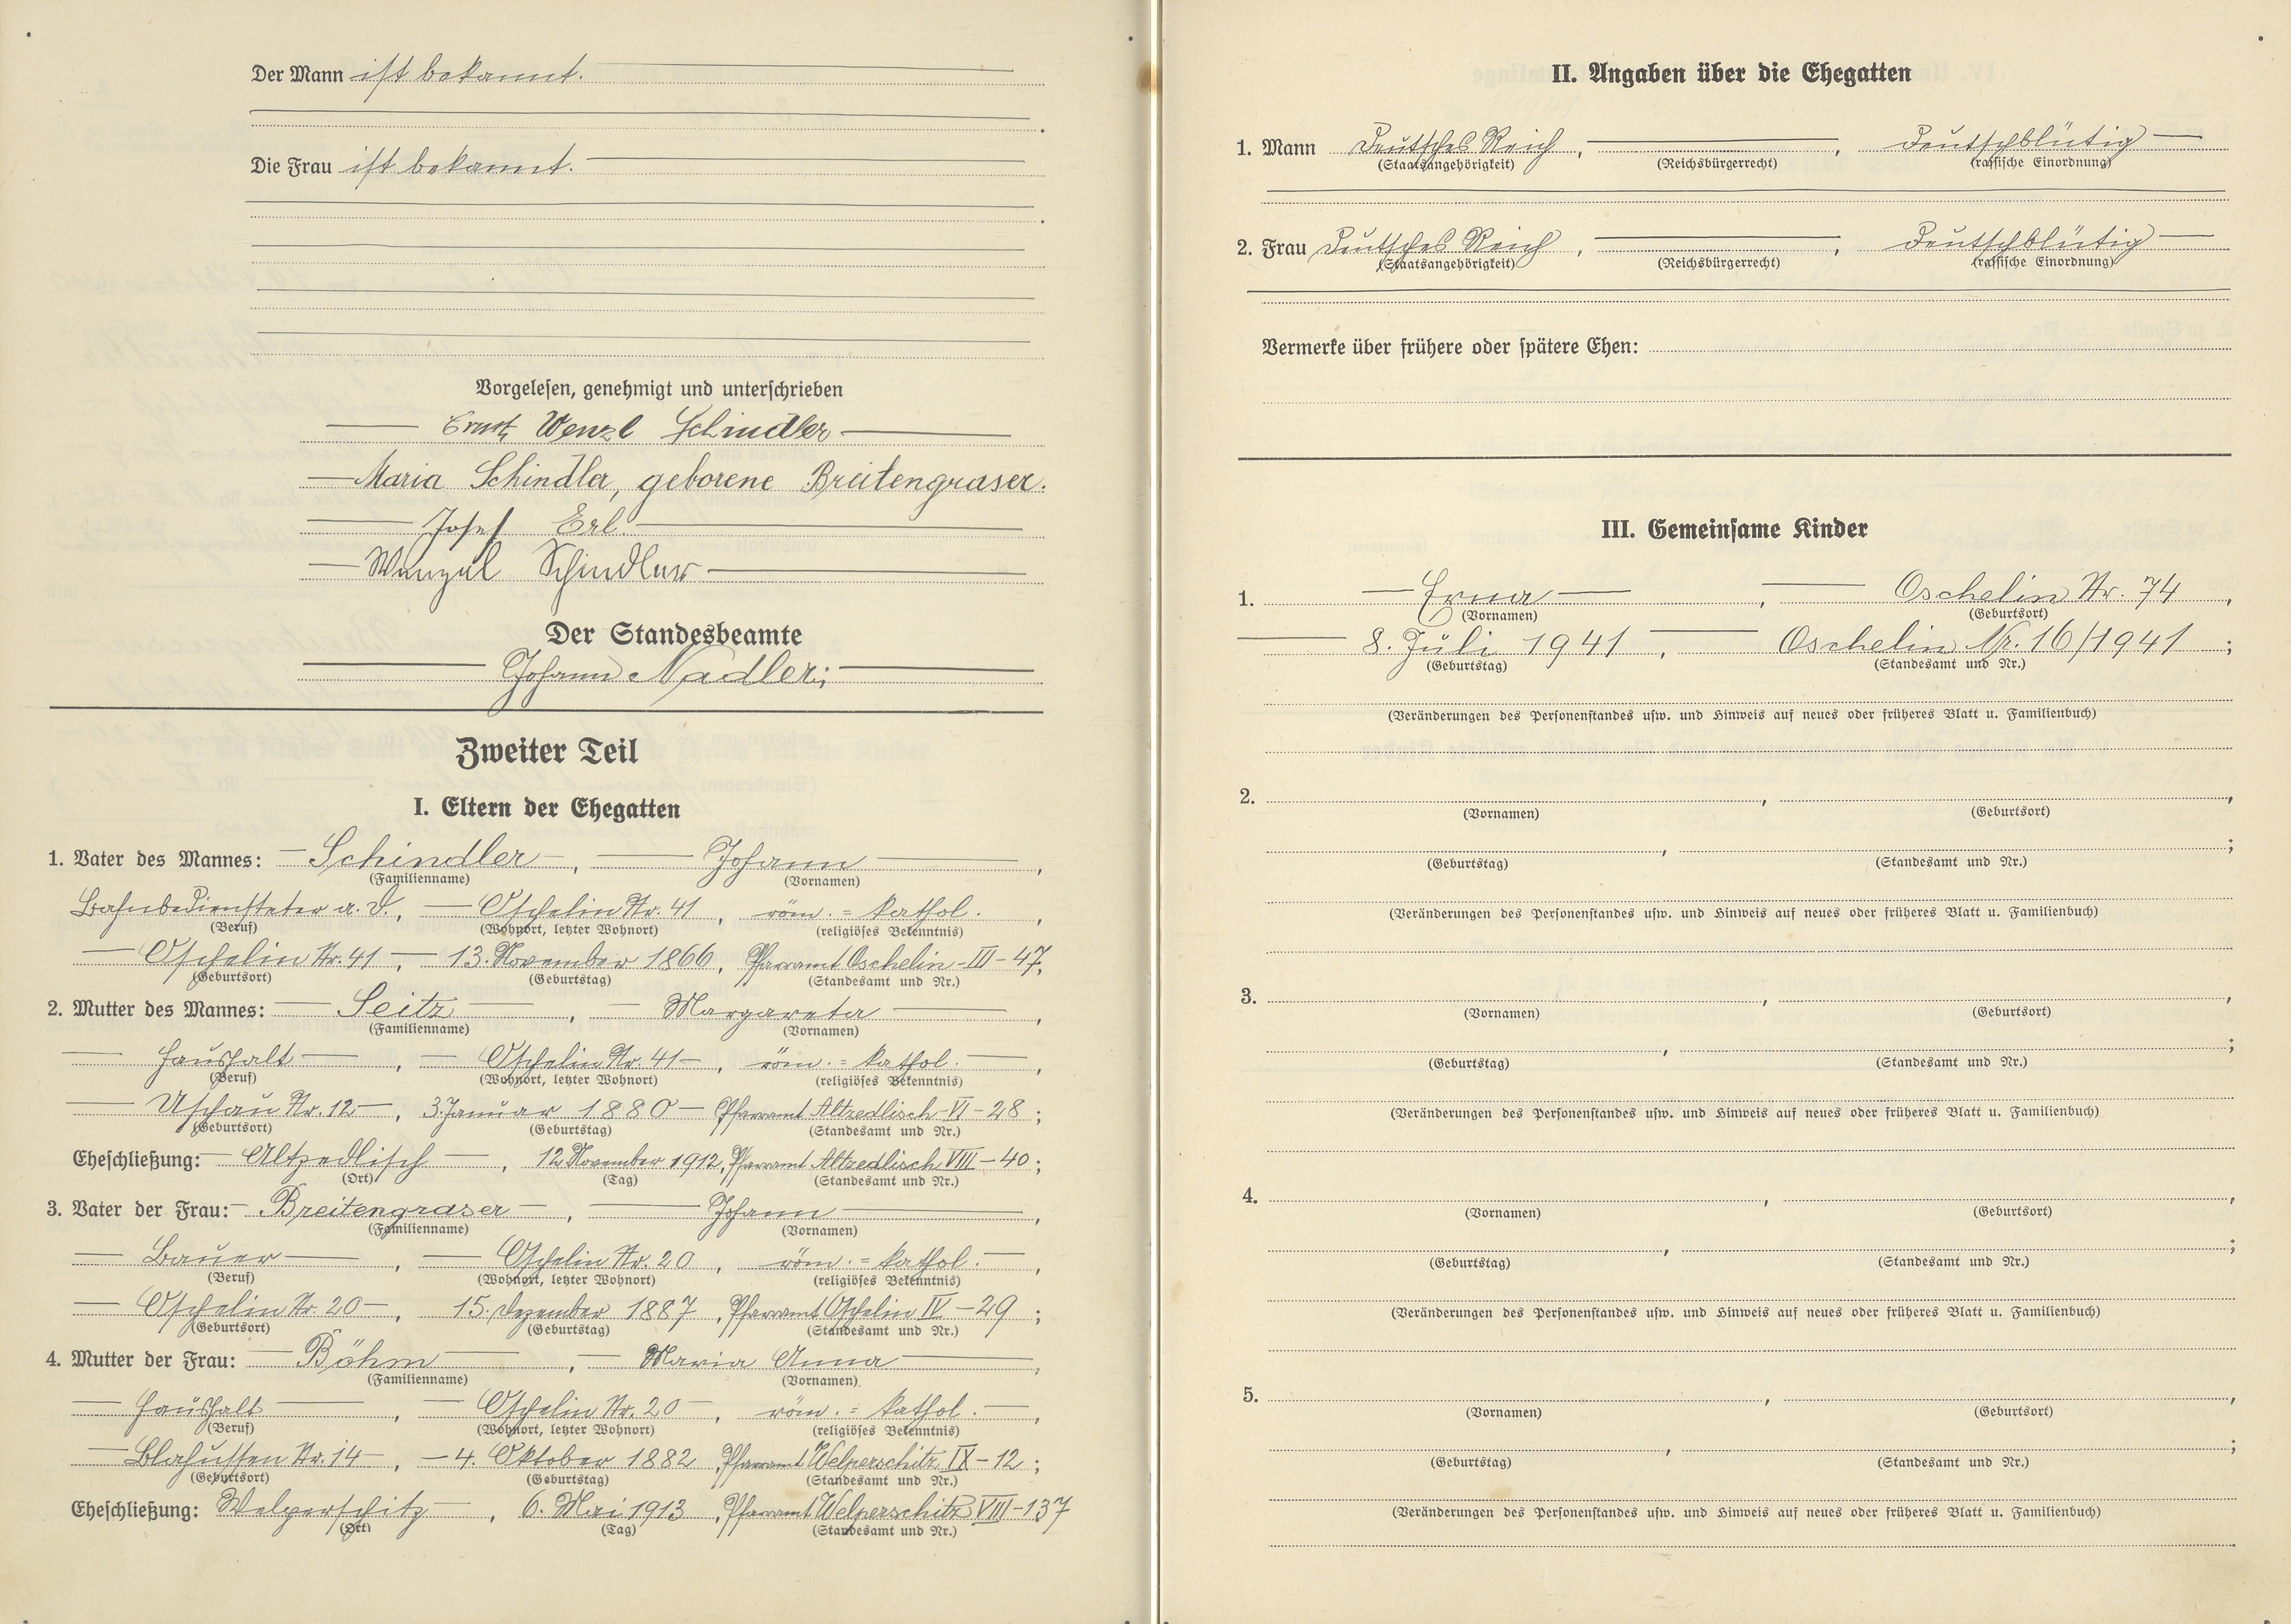 Der Mann ist bekannt.
Die Frau ist bekannt.
Vorgelesen, genehmigt und unterschrieben
Ernst Wenzl Schindler
Maria Schindler, geborene Breitengraser.
Josef Erl.
Wenzel Schindler
Der Standesbeamte
Johann Nadler;
Zweiter Teil
I. Eltern der Ehegatten
1. Vater des Mannes: Schindler, Johann,
(Familienname) (Vornamen)
Bahnbediensteter a. D., Oschelin Nr. 41, röm.=kathol.,
(Beruf) (Wohnort, letzter Wohnort) (religiöses Bekenntnis)
Oschelin Nr. 41, 13. November 1866, Pfarramt Oschelin-III-47,
(Geburtsort) (Geburtstag) (Standesamt und Nr.)
2. Mutter des Mannes: Seitz, Margareta,
(Familienname) (Vornamen)
Haushalt, Oschelin Nr. 41, röm.=kathol.,
(Beruf) (Wohnort, letzter Wohnort) (religiöses Bekenntnis)
Uschau Nr. 12, 3. Januar 1880 Pfarramt Altzedlisch-VI-28;
(Geburtsort) (Geburtstag) (Standesamt und Nr.)
Eheschließung: Altzedlisch, 12. November 1912, Pfarramt Altzedlisch VIII-40;
(Ort) (Tag) (Standesamt und Nr.)
3. Vater der Frau: Breitengraser, Johann,
(Familienname) (Vornamen)
Bauer, Oschelin Nr. 20, röm.=kathol.,
(Beruf) (Wohnort, letzter Wohnort) (religiöses Bekenntnis)
Oschelin Nr. 20, 15. Dezember 1887, Pfarramt Oschelin IV-29;
(Geburtsort) (Geburtstag) (Standesamt und Nr.)
4. Mutter der Frau: Böhm, Maria Anna,
(Familienname) (Vornamen)
Haushalt, Oschelin Nr. 20, röm.=kathol.,
(Beruf) (Wohnort, letzter Wohnort) (religiöses Bekenntnis)
Blahusten Nr. 14, 4. Oktober 1882, Pfarramt Welperschitz IX-12;
(Geburtsort) (Geburtstag) (Standesamt und Nr.)
Eheschließung: Welperschitz, 6. Mai 1913, Pfarramt Welperschitz VIII-137
(Ort) (Tag) (Standesamt und Nr.)
II. Angaben über die Ehegatten
1. Mann Deutsches Reich, , deutschblütig
(Staatsangehörigkeit) (Reichsbürgerrecht) (rassische Einordnung)
2. Frau Deutsches Reich, , deutschblütig
(Staatsangehörigkeit) (Reichsbürgerrecht) (rassische Einordnung)
Vermerke über frühere oder spätere Ehen:
III. Gemeinsame Kinder
1. Erna, Oschelin Nr. 74,
(Vornamen) (Geburtsort)
8. Juli 1941, Oschelin Nr. 16/1941;
(Geburtstag) (Standesamt und Nr.)
(Veränderungen des Personenstandes usw. und Hinweis auf neues oder früheres Blatt u. Familienbuch)
2. , ,
(Vornamen) (Geburtsort)
, ;
(Geburtstag) (Standesamt und Nr.)
(Veränderungen des Personenstandes usw. und Hinweis auf neues oder früheres Blatt u. Familienbuch)
3. , ,
(Vornamen) (Geburtsort)
, ;
(Geburtstag) (Standesamt und Nr.)
(Veränderungen des Personenstandes usw. und Hinweis auf neues oder früheres Blatt u. Familienbuch)
4. , ,
(Vornamen) (Geburtsort)
, ;
(Geburtstag) (Standesamt und Nr.)
(Veränderungen des Personenstandes usw. und Hinweis auf neues oder früheres Blatt u. Familienbuch)
5. , ,
(Vornamen) (Geburtsort)
, ;
(Geburtstag) (Standesamt und Nr.)
(Veränderungen des Personenstandes usw. und Hinweis auf neues oder früheres Blatt u. Familienbuch)